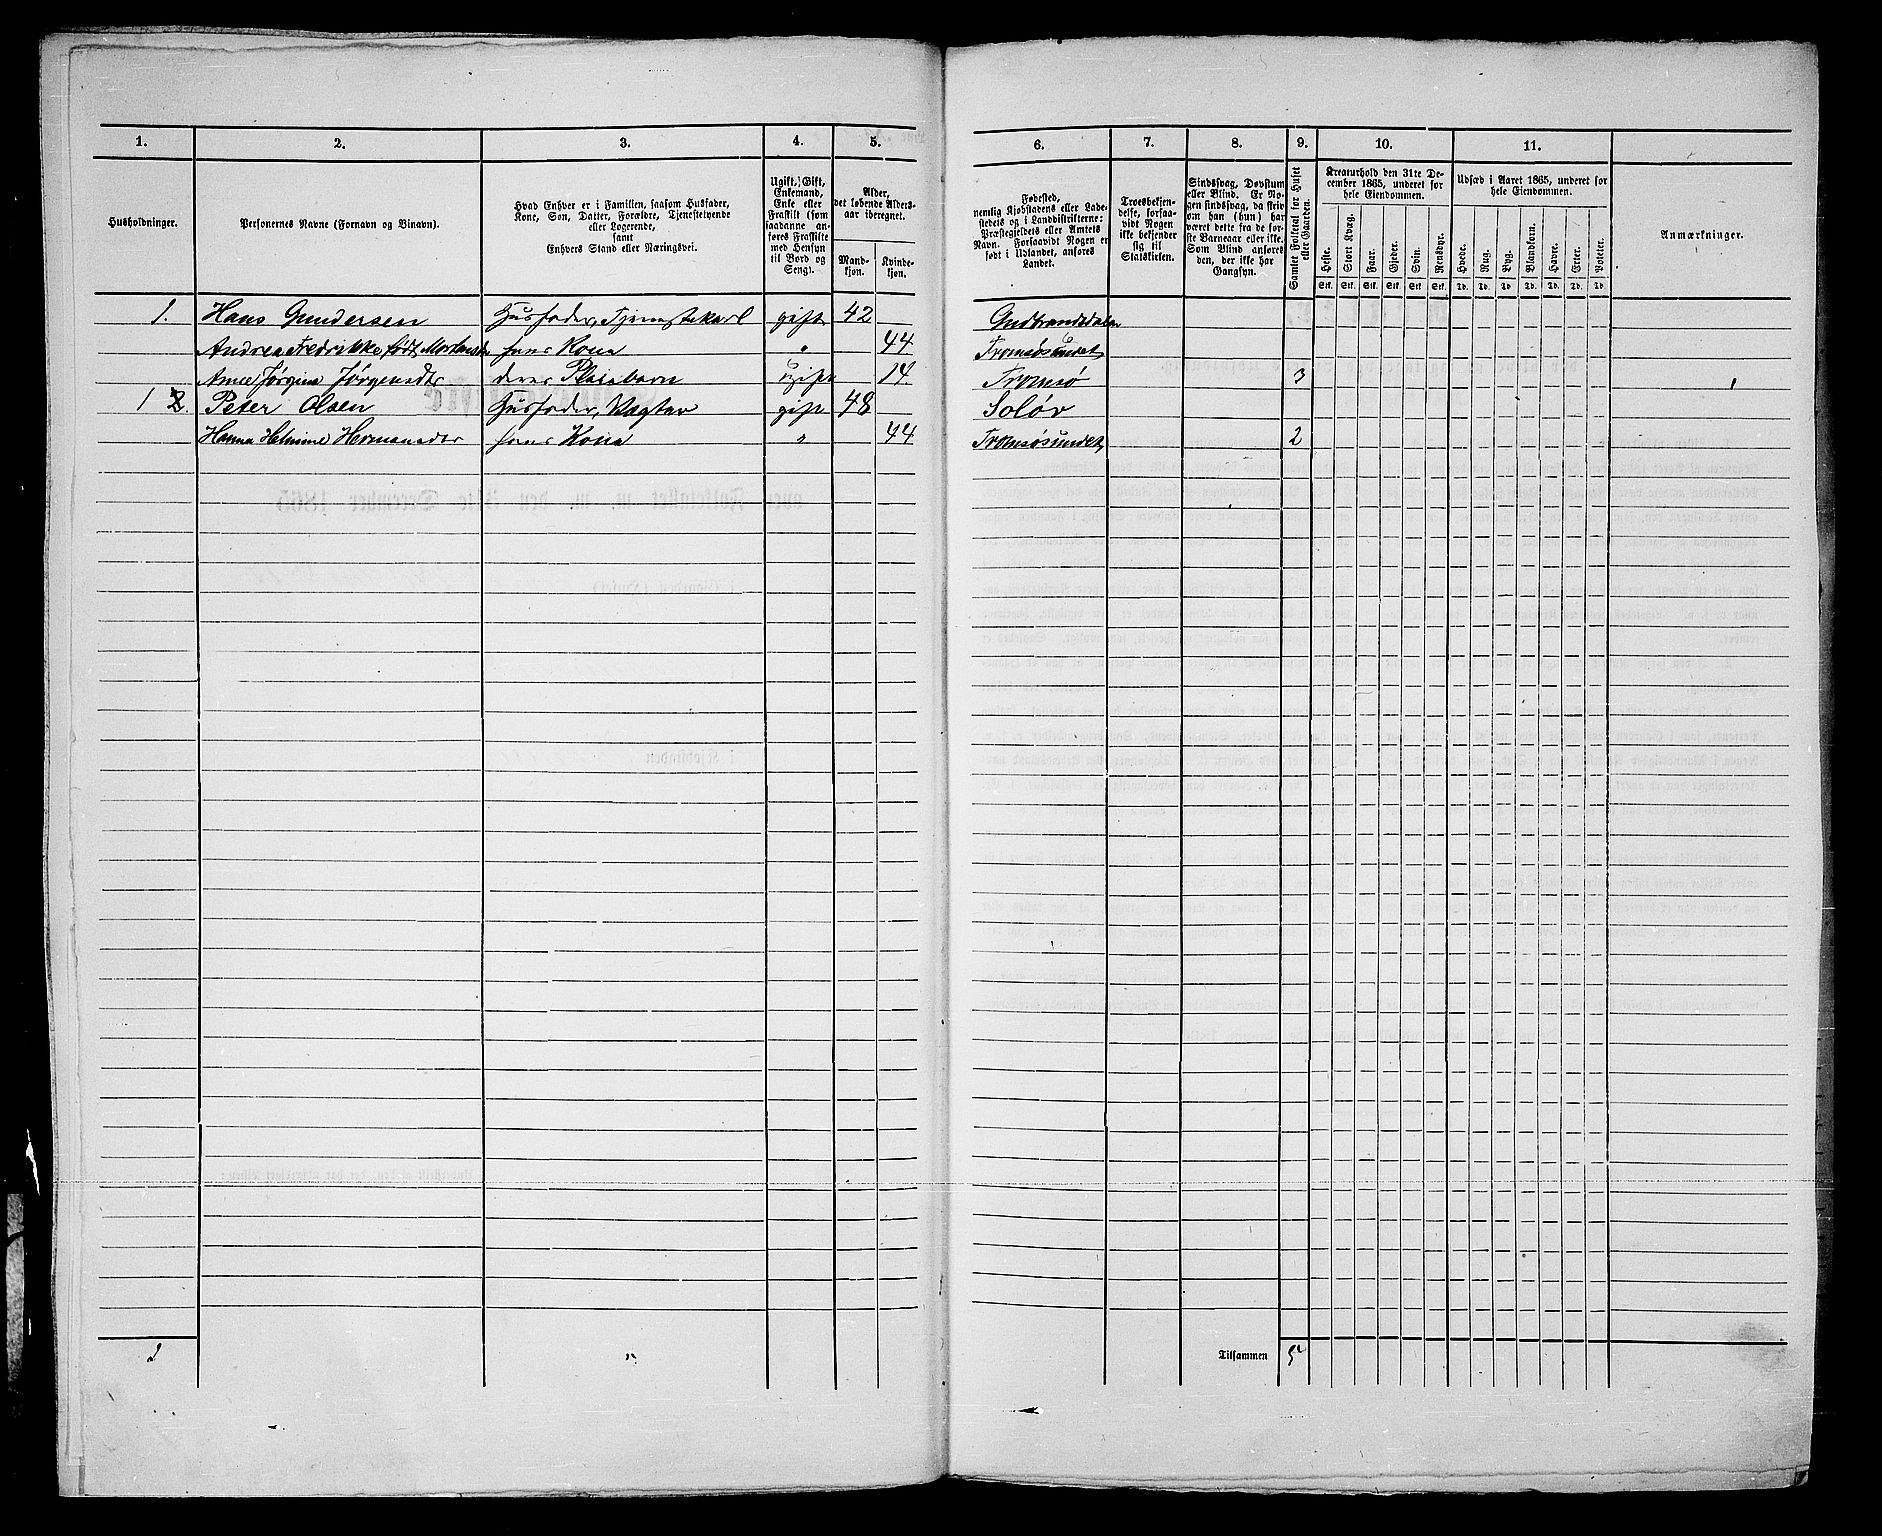 1. 2. 3. 4. 5. 6. 7. 8. 9. 10. 11.
Husholdninger.
Personernes Navne (Fornavn og Binavn).
Hvad Enhver er i Familien, saasom Husfader,
Kone, Søn, Datter, Forældre, Tjenestetyende
eller Logerende,
samt
Enhvers Stand eller Næringsvei.
Ugift, Gift,
Enkemand,
Enke eller
Fraskilt (som
saadanne an-
føres Fraskilte
med Hensyn
til Bord og
Seng).
Alder,
det løbende Alders-
aar iberegnet.
Mand-
kjøn.
Kvinde-
kjøn.
Fødested,
nemlig Kjøbstadens eller Lade-
stedets og i Landdistrikterne:
Præstegjeldets eller Amtets
Navn. Forsaavidt Nogen er
født i Udlandet, anføres
Landet.
Troesbekjen-
delse, forsaa-
vidt Nogen
ikke bekjender
sig til
Statskirken.
Sindssvag, Døvstum
eller Blind. Er No-
gen sindssvag, da skriv
om han (hun) har
været dette fra de for-
ste Barneaar eller ikke.
Som Blind anføres
den, der ikke har
Gangsyn.
Samlet Folketal for Huset
eller Gaarden.
Kreaturhold den 31te De-
cember 1865, underet for
hele Eiendommen.
Heste. Stort Kvæg. Faar. Gjeder. Svin. Rensdyr.
Stk. Stk. Stk. Stk. Stk. Stk.
Udsæd i Aaret 1865, underet for
hele Eiendommen.
Hvede. Rug. Byg. Blandkorn. Havre. Erter. Poteter.
Td. Td. Td. Td. Td. Td. Td.
Anmærkninger.
1. Hans Gundersen Husfader, Tjenestekarl gift 42 Gudbrandsdalen
Andrea Fredrikke født Mortensdr hans Kone " 44 Tromsøsundet
Anne Jørgine Jørgensdtr deres Pleiebarn ugift 14 Tromsø 3
1 2. Peter Olsen Husfader, Vægter gift 48 Soløv
Hanna Helmine Hermansdtr hans Kone " 44 Tromsøsundet 2
2 Tilsammen 5